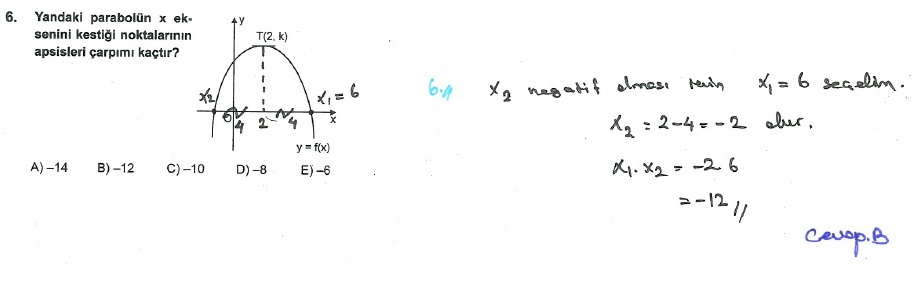 6. Yandaki parabolün x ek-
senini kestiği noktalarının
apsisleri çarpımı kaçtır?
y
T(2, k)
x₂
x₁ = 6
6
4
2
4
x
y = f(x)
A) –14 B) –12 C) –10 D) –8 E) –6
6.) x₂ negatif olması için x₁ = 6 seçelim.
x₂ = 2-4 = -2 olur.
x₁. x₂ = -2 6
= -12 //
Cevap.B